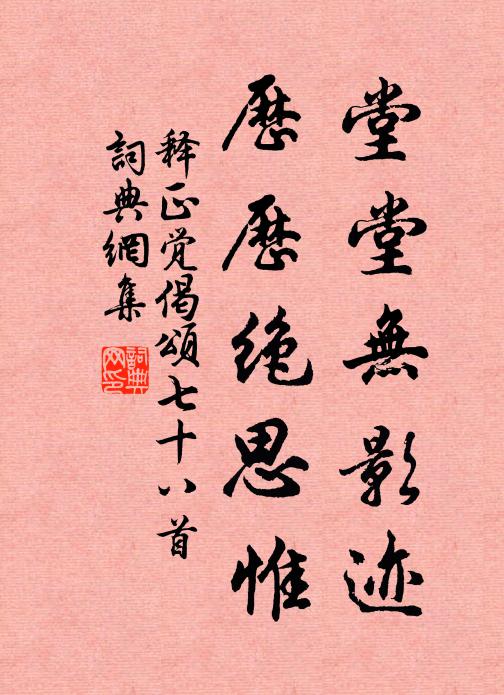 堂堂無影迹
歷歷絶思惟
释正觉偈頌七十八首
詞典網集
詞典網印